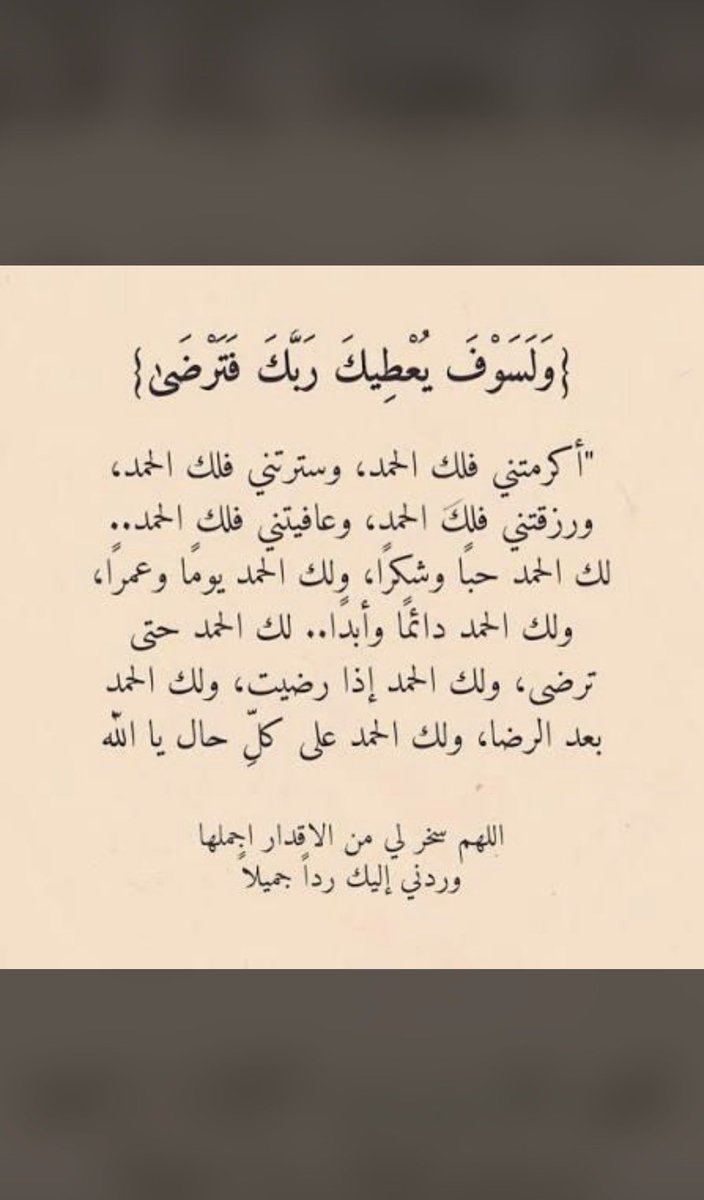 {وَلَسَوْفَ يُعْطِيكَ رَبُّكَ فَتَرْضَىٰ}
"أكرمتني فلك الحمد، وسترتني فلك الحمد،
ورزقتني فلكَ الحمد، وعافيتني فلك الحمد..
لك الحمد حبًا وشكرًا، ولك الحمد يومًا وعمرًا،
ولك الحمد دائمًا وأبدًا.. لك الحمد حتى
ترضى، ولك الحمد إذا رضيت، ولك الحمد
بعد الرضا، ولك الحمد على كلِّ حال يا الله
اللهم سخر لي من الاقدار اجملها
وردني إليك رداً جميلاً